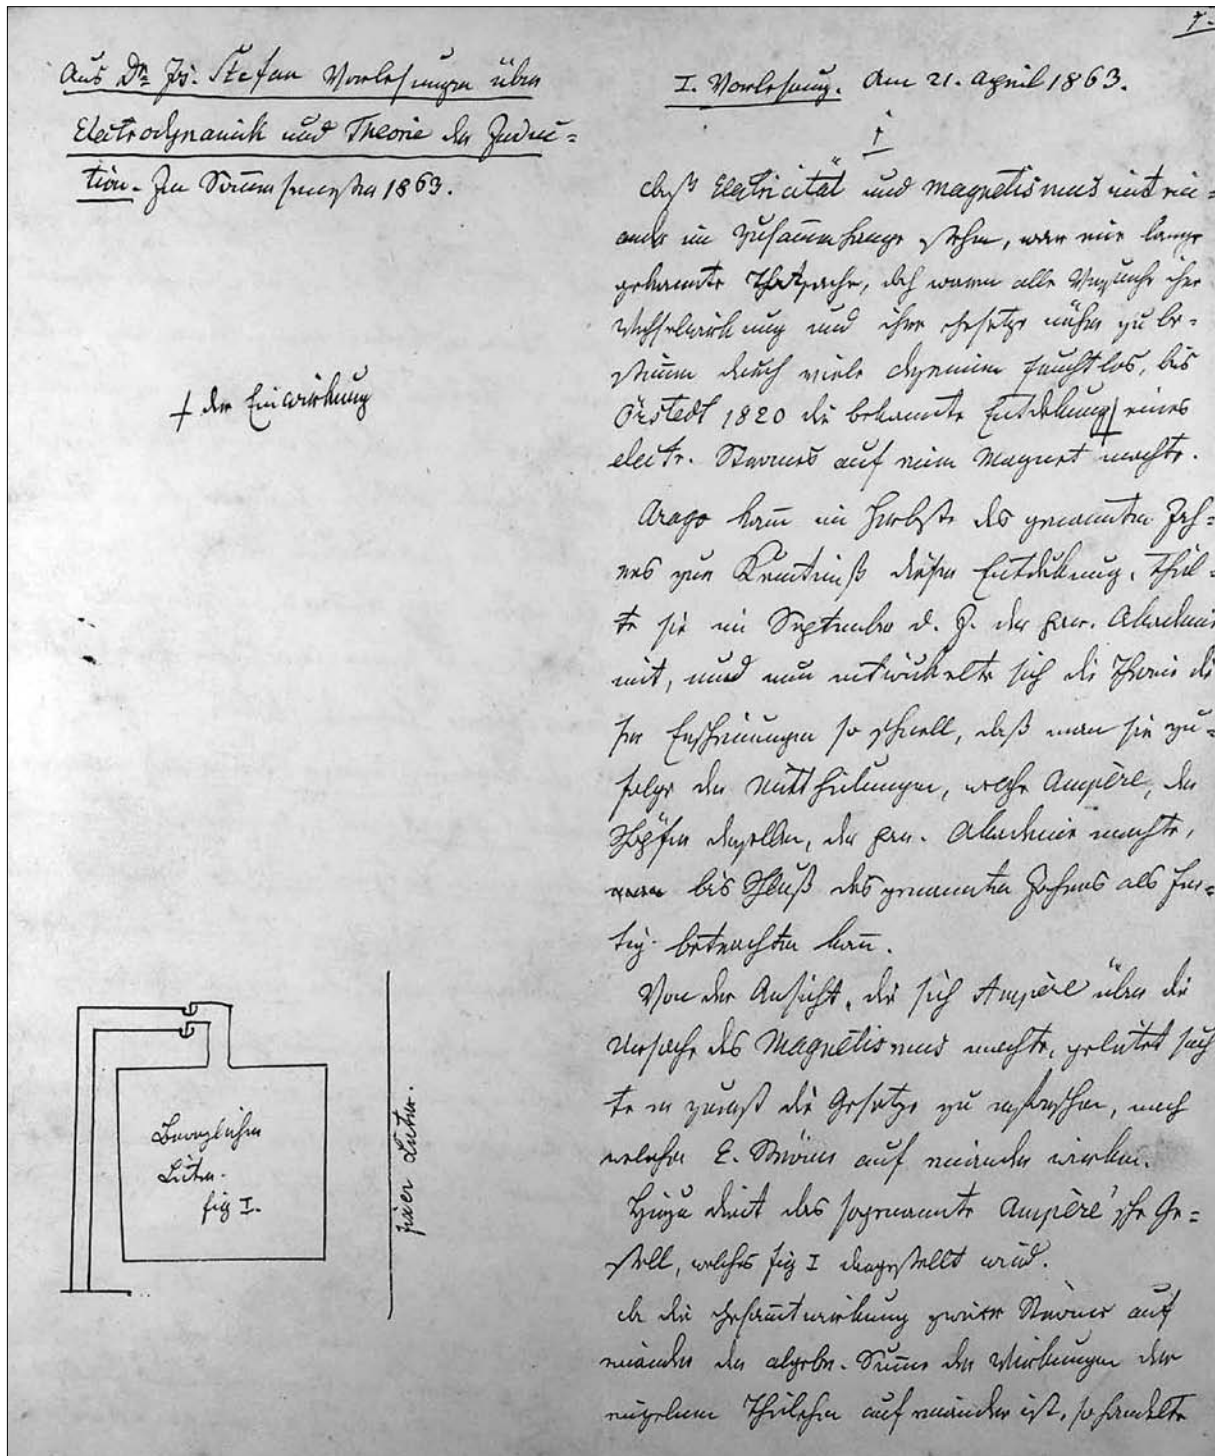 Aus Dr. Jos. Stefan Vorlesungen über
Electrodynamik und Theorie der Induc=
tion. Im Sommersemester 1863.
† der Einwirkung
Beweglicher
Leiter.
fig I.
fixer Leiter.
I. Vorlesung. Am 21. April 1863.
Daß Electricität und Magnetismus mit ein=
ander im Zusammenhange stehen, war eine lange
gekannte Thatsache, doch waren alle Versuche ihre
Wechselwirkung und ihre Gesetze näher zu be=
stimmen durch viele Decennien fruchtlos, bis
Örstedt 1820 die bekannte Entdekung † eines
electr. Stromes auf einen Magnet machte.
Arago kam im Herbste des genannten Jah=
res zur Kenntniß dieser Entdekung, theil=
te sie im September d. J. der Akademie
mit, und nun entwickelte sich die Theorie die
ser Erscheinungen so schnell, daß man sie zu=
folge der Mittheilungen, welche Ampère, der
Schöpfer derselben, der Akademie machte,
bis Schluß des genannten Jahres als fer=
tig betrachten kann.
Von der Ansicht, die sich Ampère über die
Ursache des Magnetismus machte, geleitet such
te er zuerst die Gesetze zu erforschen, nach
welchen E. Ströme auf einander wirken.
Hiezu dient das sogenannte Ampère'sche Ge=
stell, welches fig I dargestellt wird.
Da die Gesammtwirkung zweier Ströme auf
einander der algebr. Summe der Wirkungen der
einzelnen Theilchen auf einander ist, so handelte